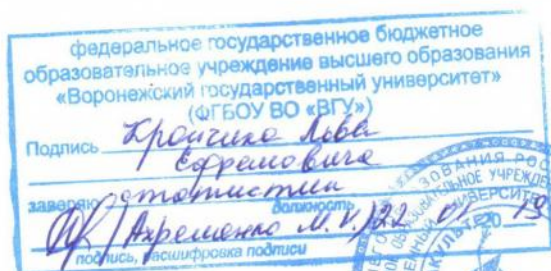 федеральное государственное бюджетное
образовательное учреждение высшего образования
«Воронежский государственный университет»
(ФГБОУ ВО «ВГУ»)
Подпись Кройчика Льва
Ефремовича
заверяю
должность
22 01 19
подпись, расшифровка подписи